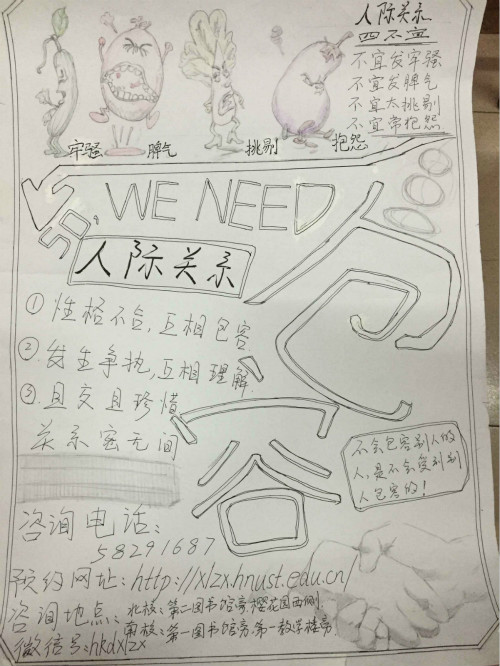 人际关系
四不宜
不宜发牢骚
不宜发脾气
不宜太挑剔
不宜常抱怨
牢骚 脾气 挑剔 抱怨
so, WE NEED
包容
人际关系
① 性格不合,互相包容
②.发生争执,互相理解.
③.且交且珍惜
关系密无间
不会包容别人的
人,是不会受到别
人包容的!
咨询电话:
58291687
预约网址:http://xlzx.hnust.edu.cn/
咨询地点:北校:第二图书馆旁,樱花园西侧
南校:第一图书馆旁,第一教学楼旁
微信号:hkdxlzx